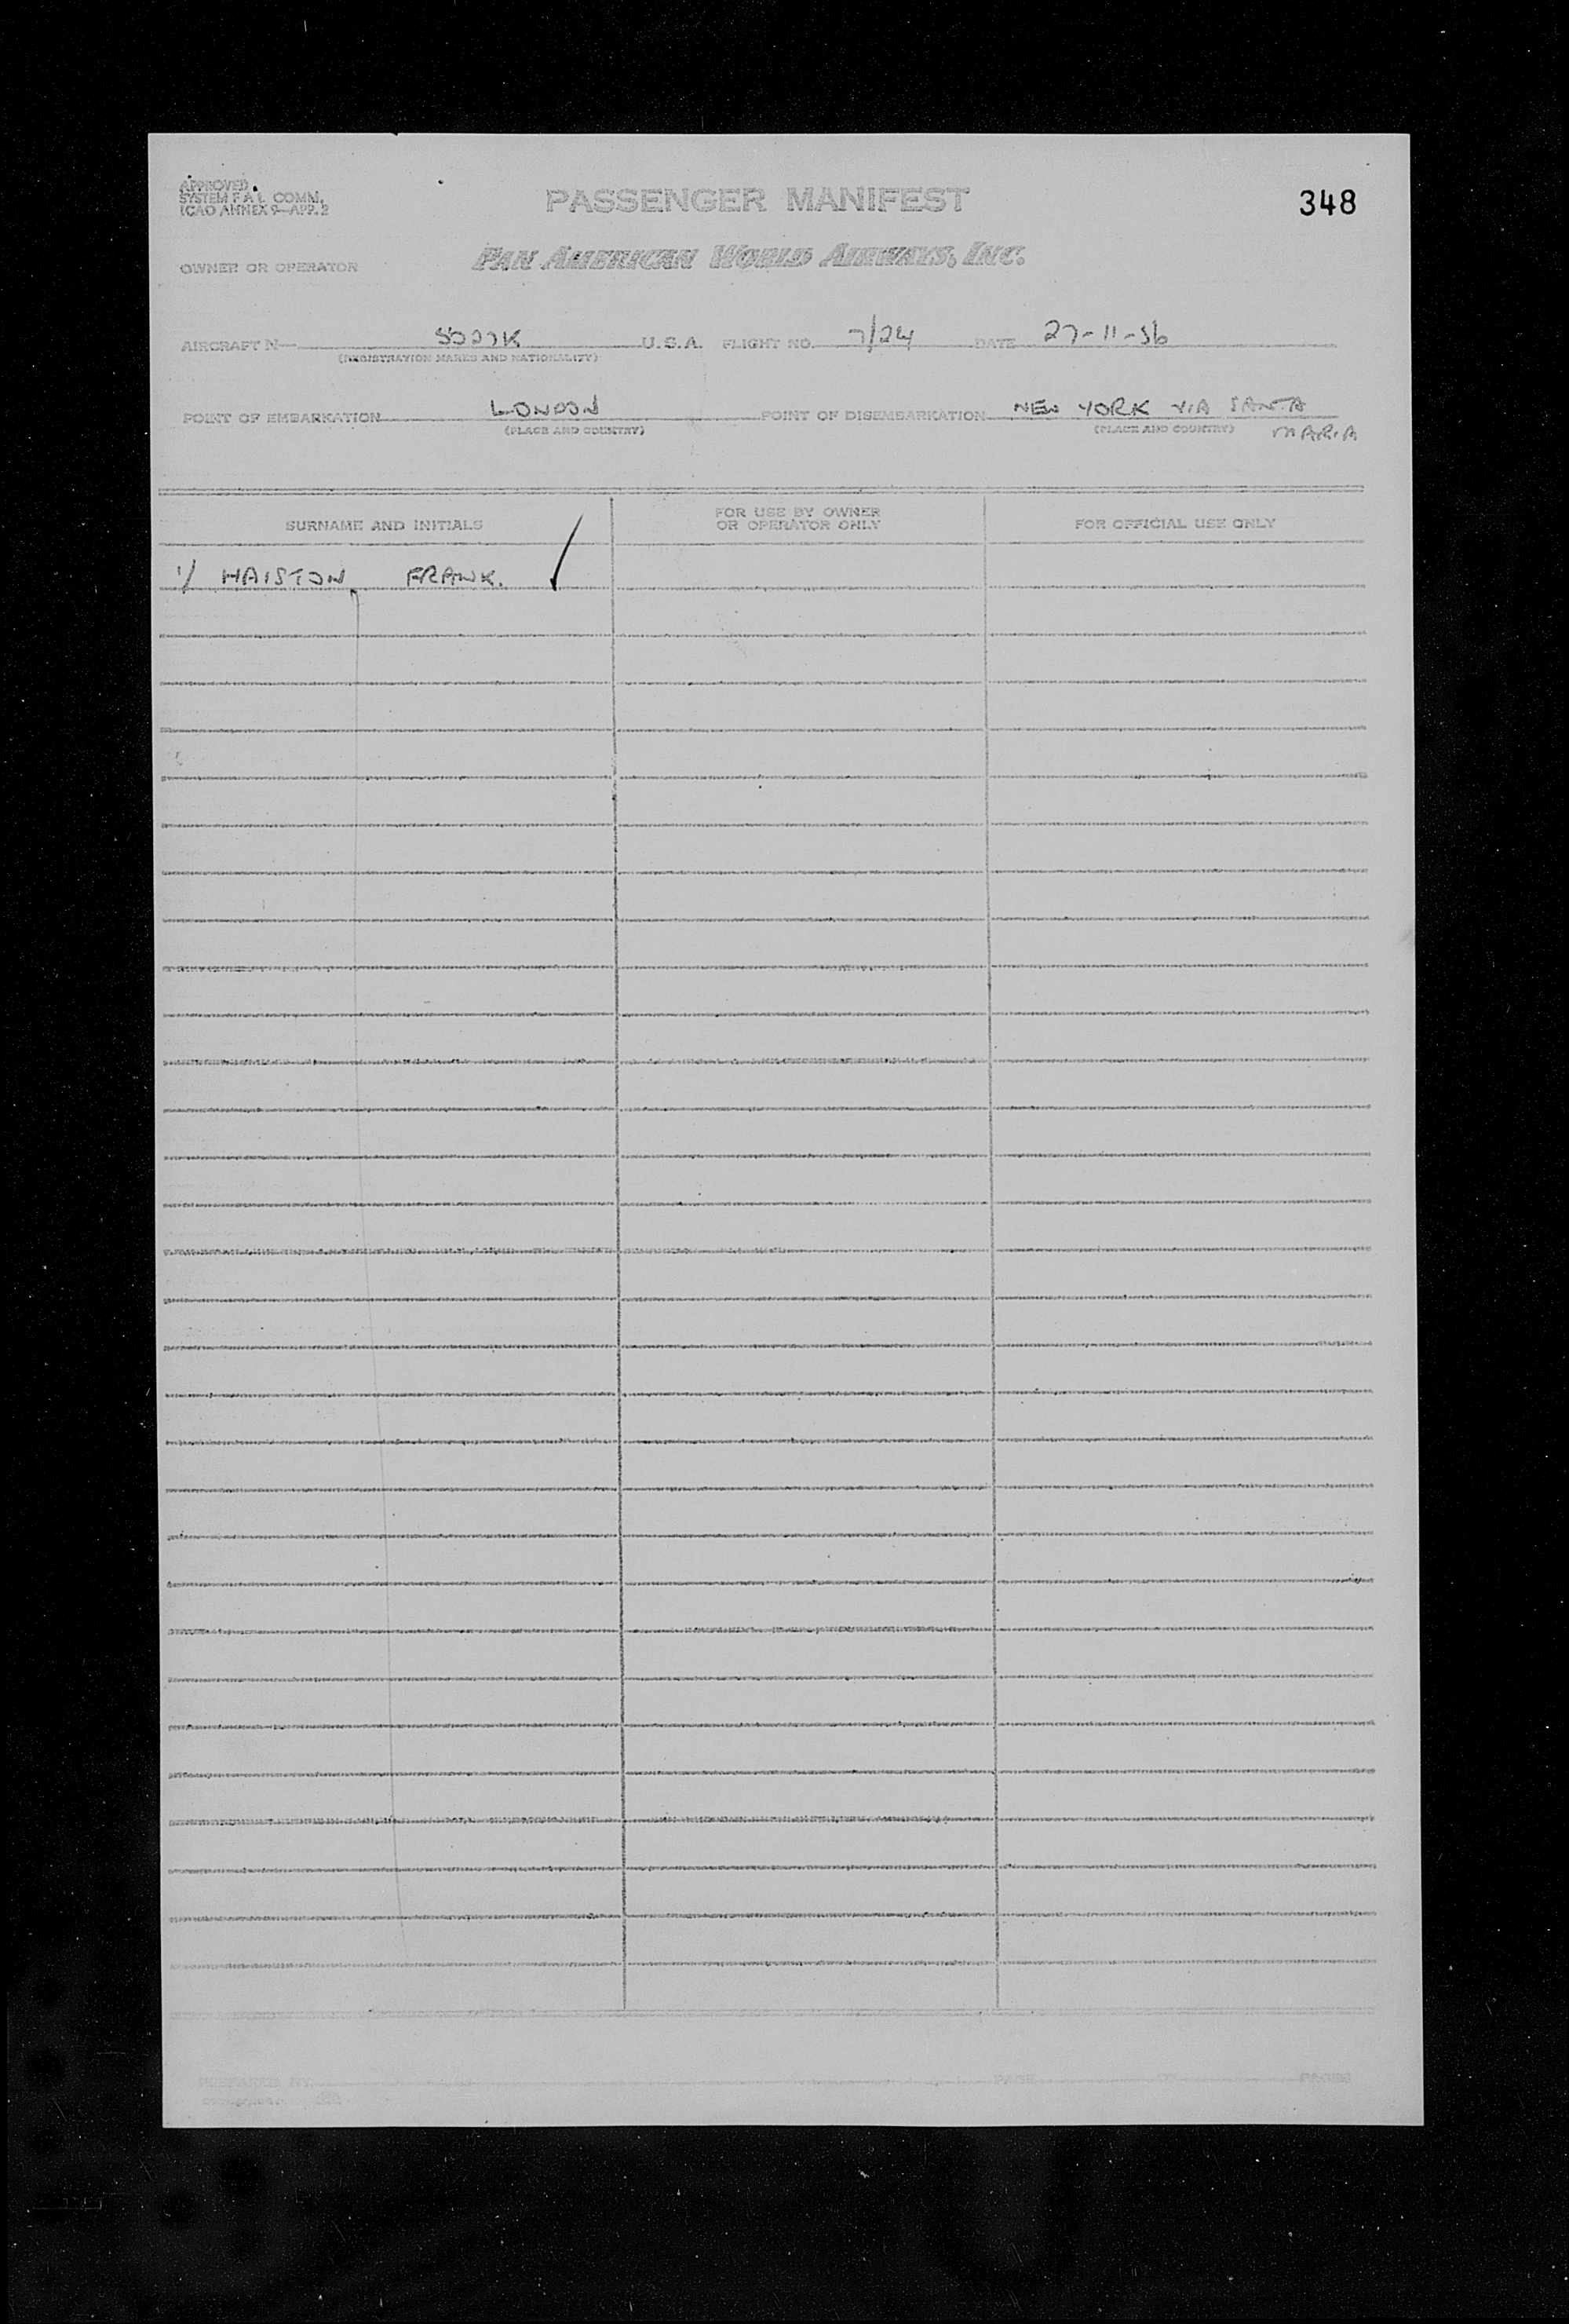 APPROVED
SYSTEM F A L COMM.
ICAO ANNEX 9—APP. 2
PASSENGER MANIFEST
348
OWNER OR OPERATOR
PAN AMERICAN WORLD AIRWAYS, INC.
AIRCRAFT N— U.S.A. FLIGHT NO. 7/24 DATE 27-11-56
(REGISTRATION MARKS AND NATIONALITY)
POINT OF EMBARKATION LONDON POINT OF DISEMBARKATION NEW YORK VIA SANTA
(PLACE AND COUNTRY) (PLACE AND COUNTRY) MARIA
SURNAME AND INITIALS
FOR USE BY OWNER
OR OPERATOR ONLY
FOR OFFICIAL USE ONLY
1/ HAISTON, FRANK.
PREPARED BY PAGE OF PAGES